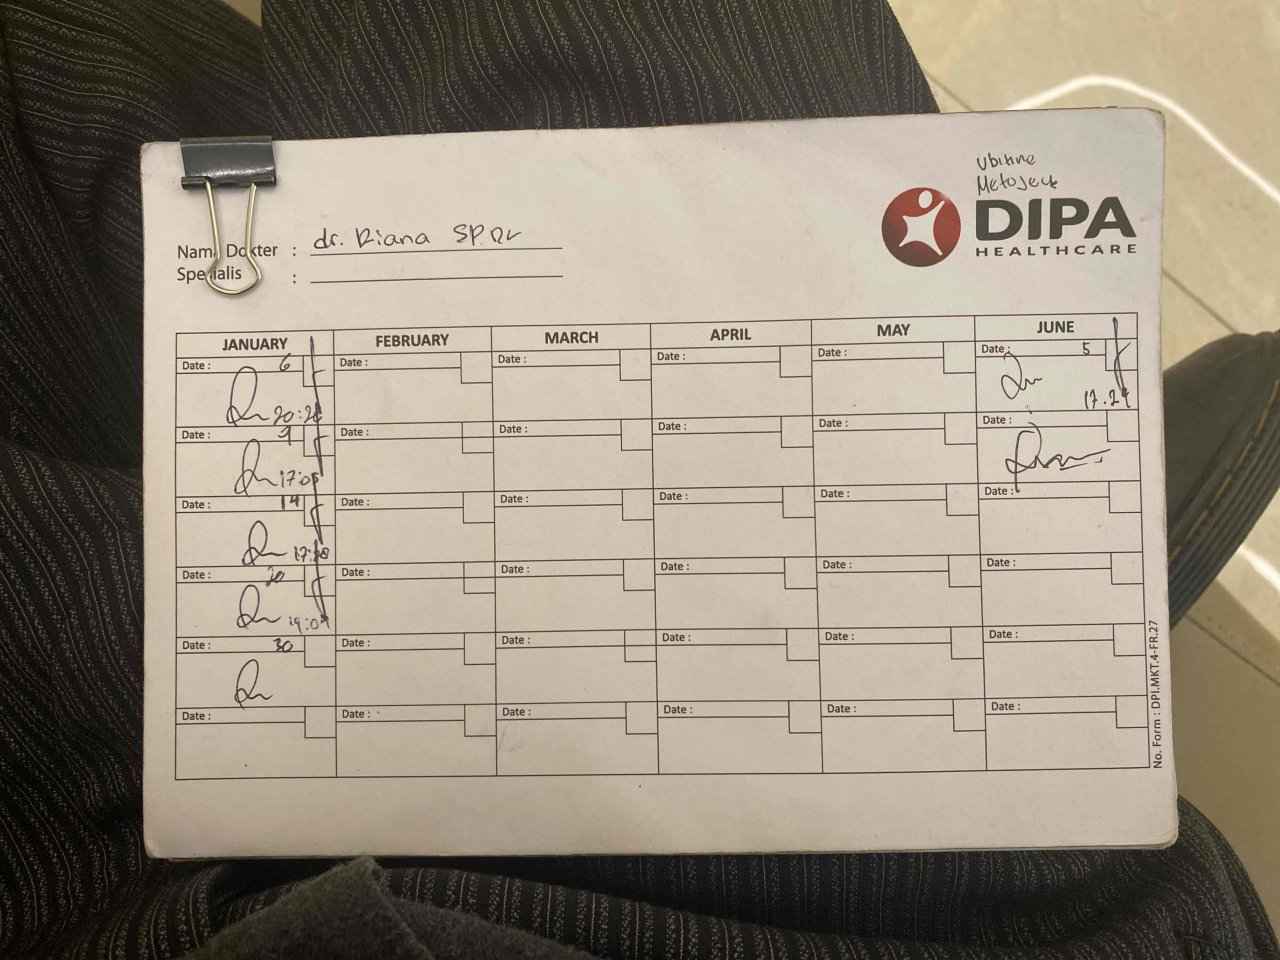 Ubitine
Metoject
DIPA
HEALTHCARE
Nama Dokter : dr. Riana
Spesialis :
JANUARY FEBRUARY MARCH APRIL MAY JUNE
Date : 6 Date : Date : Date : Date : Date : 5
17.29
Date : 9 Date : Date : Date : Date : Date :
17:05
Date : 14 Date : Date : Date : Date : Date :
Date : 20 Date : Date : Date : Date : Date :
Date : 30 Date : Date : Date : Date : Date :
Date : Date : Date : Date : Date : Date :
No. Form : DPI.MKT.4-FR.27